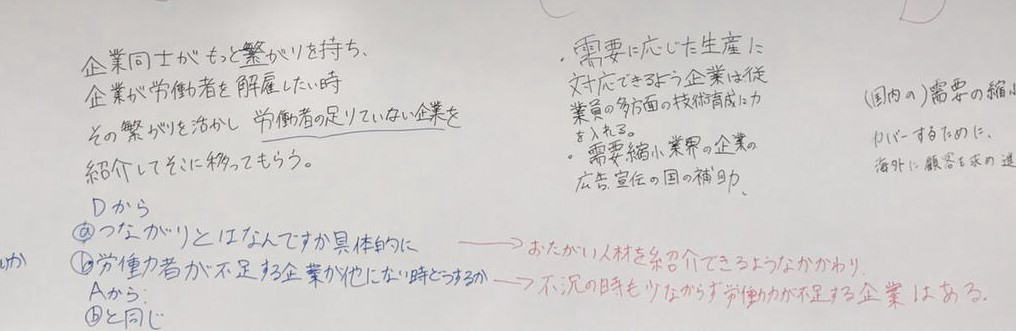 企業同士がもっと繋がりを持ち、
企業が労働者を解雇したい時
その繋がりを活かし 労働者の足りていない企業を
紹介してそこに移ってもらう。
Dから
ⓐつながりとはなんですか具体的に → おたがい人材を紹介できるようなかかわり.
ⓑ労働力者が不足する企業が他にない時どうするか → 不況の時も少なからず労働力が不足する企業はある.
Aから:
ⓑと同じ
・需要に応じた生産に
対応できるよう企業は従
業員の多方面の技術育成に力
を入れる。
・需要縮小業界の企業の
広告宣伝の国の補助、
(国内の)需要の縮小
カバーするために、
海外に顧客を求め進